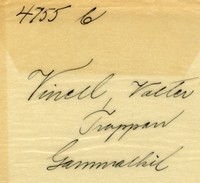 4755 C
Vinell, Valter
Trappan
Gammalkil